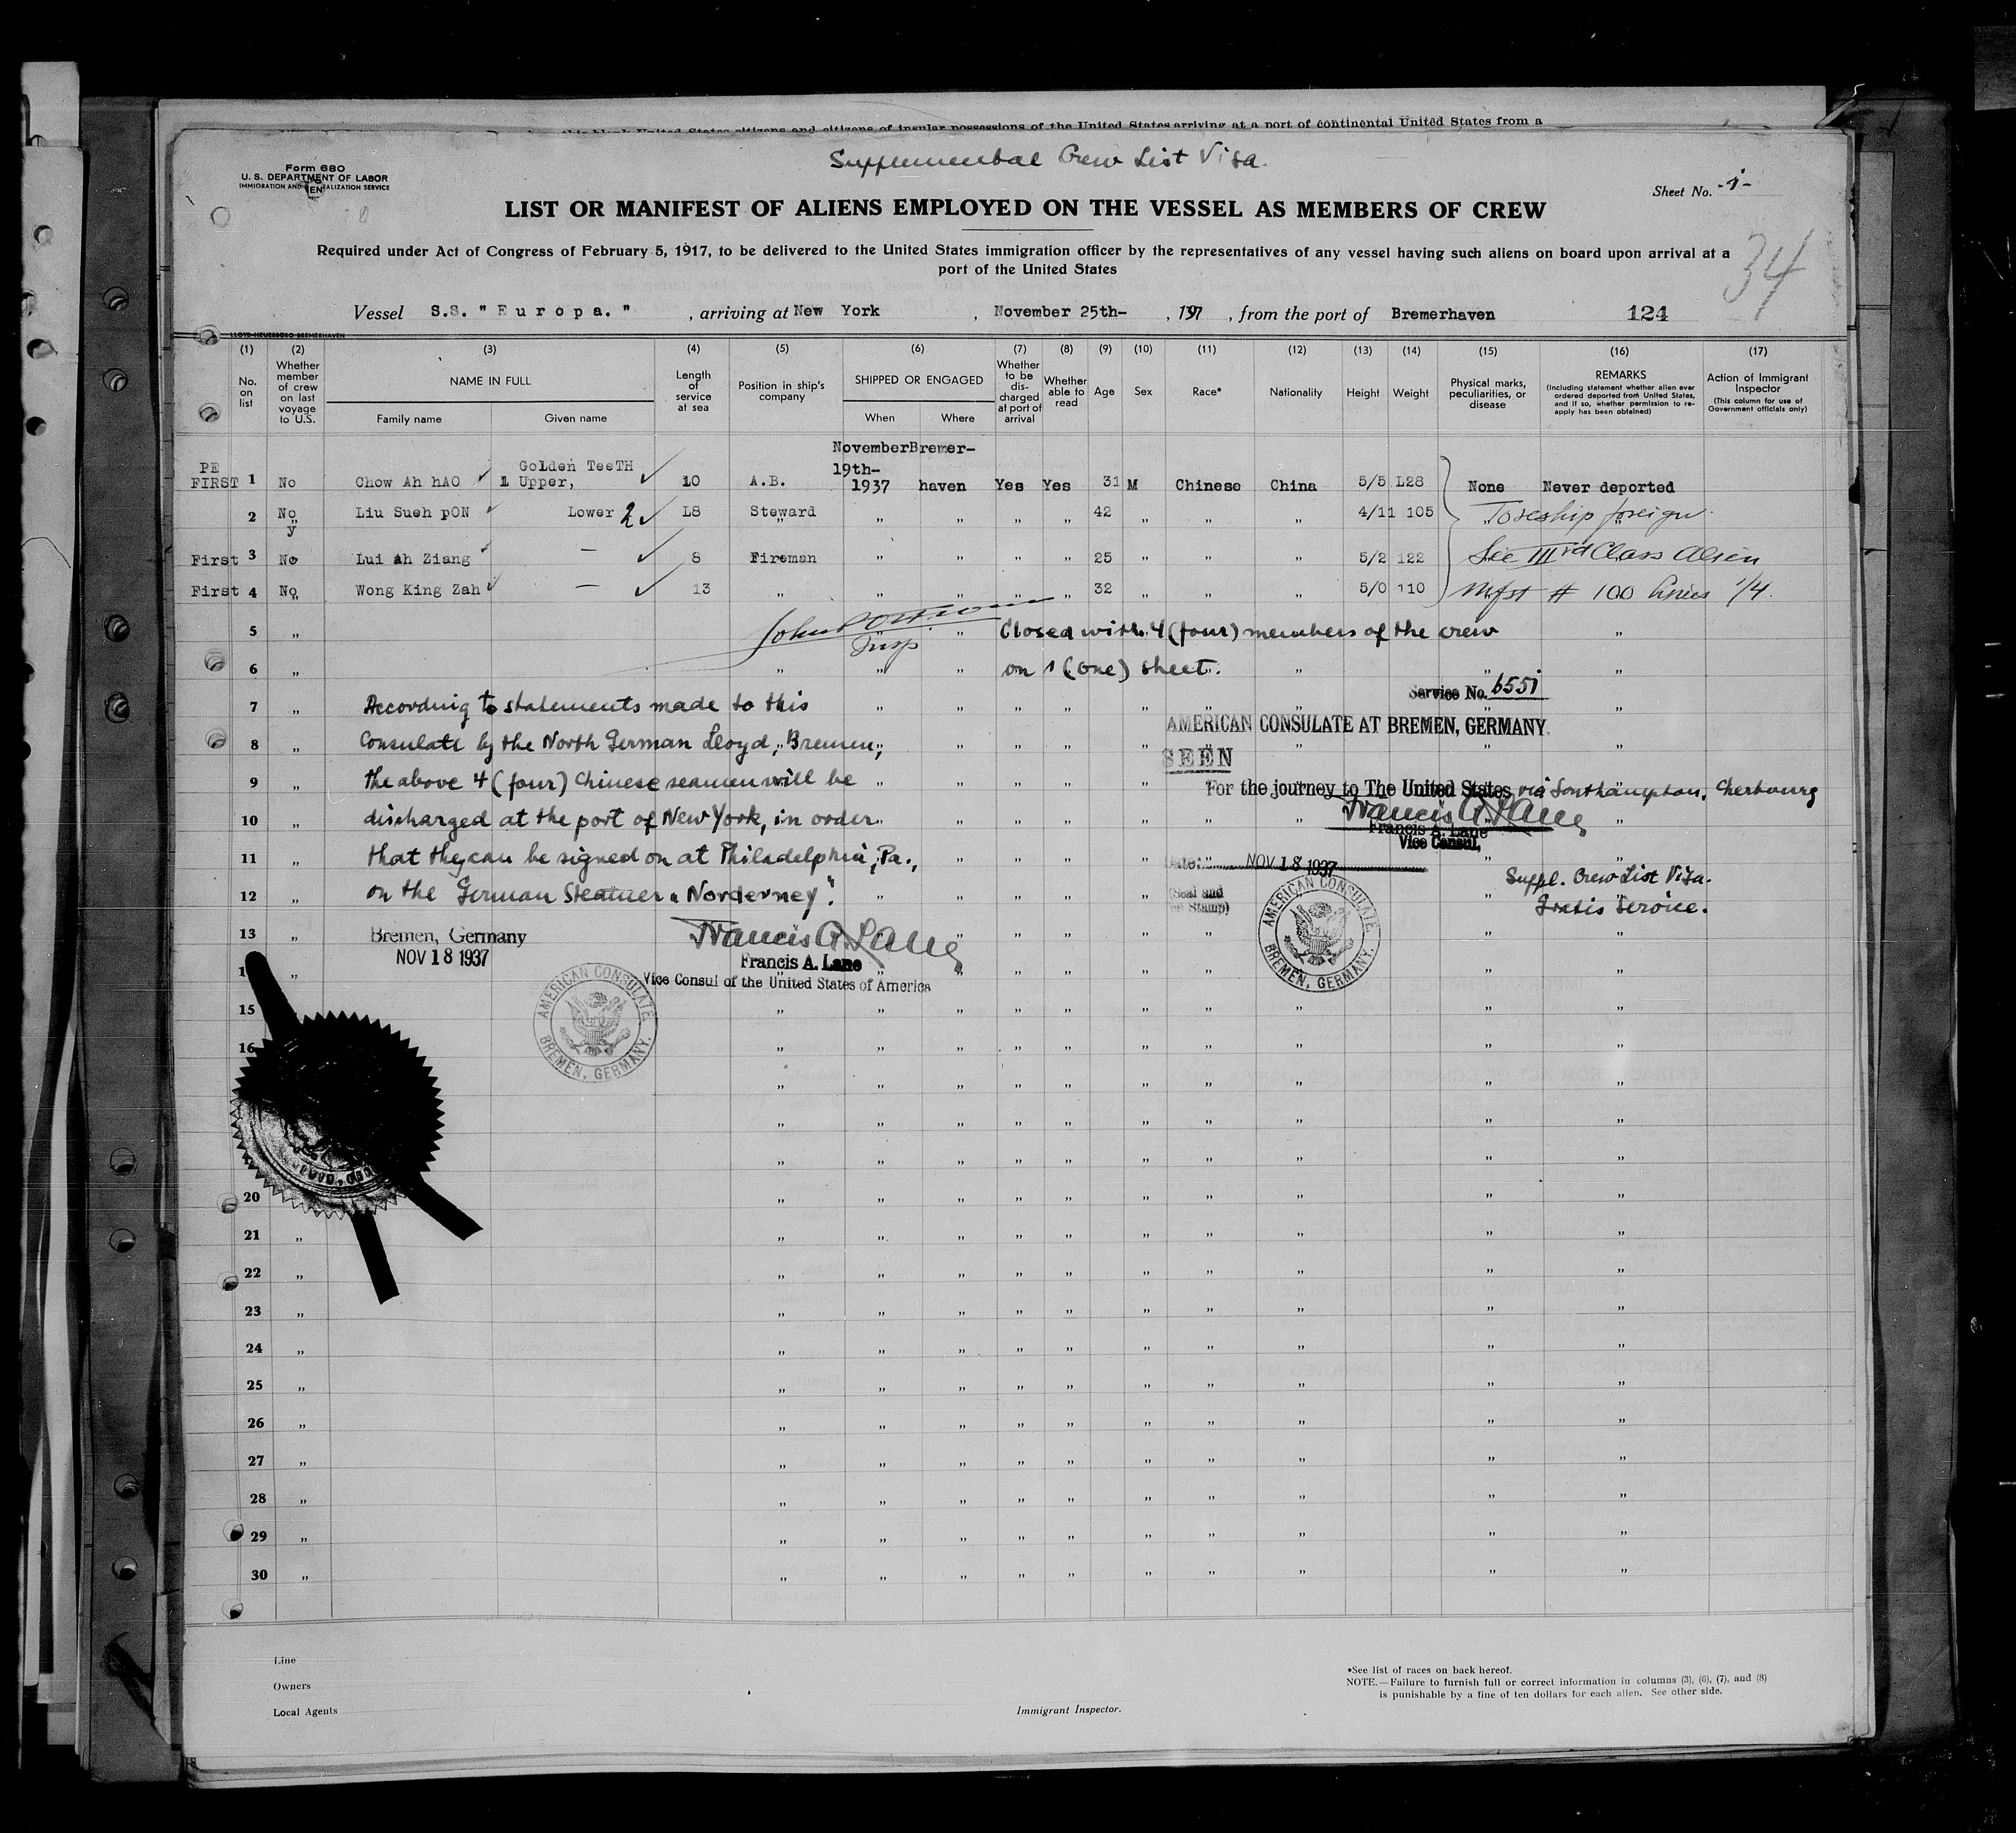 this blank United States citizens and citizens of insular possessions of the United States arriving at a port of continental United States from a
Supplemental Crew List Visa.
Form 680
U. S. DEPARTMENT OF LABOR
IMMIGRATION AND NATURALIZATION SERVICE
Sheet No. -1-
LIST OR MANIFEST OF ALIENS EMPLOYED ON THE VESSEL AS MEMBERS OF CREW
Required under Act of Congress of February 5, 1917, to be delivered to the United States immigration officer by the representatives of any vessel having such aliens on board upon arrival at a
port of the United States
34
Vessel S.S. " E u r o p a. " , arriving at New York , November 25th- , 1937 , from the port of Bremerhaven 124
(1) (2) (3) (4) (5) (6) (7) (8) (9) (10) (11) (12) (13) (14) (15) (16) (17)
No. on list
Whether member of crew on last voyage to U.S.
NAME IN FULL
Family name Given name
Length of service at sea
Position in ship's company
SHIPPED OR ENGAGED
When Where
Whether to be discharged at port of arrival
Whether able to read
Age Sex Race* Nationality Height Weight
Physical marks, peculiarities, or disease
REMARKS
(Including statement whether alien ever ordered deported from United States, and if so, whether permission to reapply has been obtained)
Action of Immigrant Inspector
(This column for use of Government officials only)
NovemberBremer-
PE Golden TeeTH 19th-
FIRST 1 No Chow Ah hAO 1 Upper, 10 A.B. 1937 haven Yes Yes 31 M Chinese China 5/5 L28 None Never deported
2 No Liu Sueh pON Lower 2 L8 Steward „ „ „ „ 42 „ „ „ 4/11 105 To reship foreign
y
First 3 No Lui Ah Ziang — 8 Fireman „ „ „ „ 25 „ „ „ 5/2 122 See IIIrd Class Alien
First 4 No Wong King Zah — 13 „ „ „ „ „ 32 „ „ „ 5/0 110 Mfst # 100 lines 1/4.
5 „ Closed with 4 (four) members of the crew
Insp
6 „ on 1 (one) sheet.
Service No. 6551
7 „ According to statements made to this
AMERICAN CONSULATE AT BREMEN, GERMANY.
8 „ Consulate by the North German Lloyd, Bremen,
SEEN
9 „ the above 4 (four) Chinese seamen will be
For the journey to The United States via Southampton, Cherbourg
10 „ discharged at the port of New York, in order
Francis A. Lane
Francis A. Lane
Vice Consul,
11 „ that they can be signed on at Philadelphia, Pa.,
Date: NOV 18 1937
12 „ on the German Steamer „Norderney".
Suppl. Crew List Visa.
Gratis Service.
(Seal and
no Stamp)
AMERICAN CONSULATE. BREMEN, GERMANY.
13 „ Bremen, Germany
NOV 18 1937
Francis A. Lane
Francis A. Lane
Vice Consul of the United States of America
AMERICAN CONSULATE. BREMEN, GERMANY.
15
16
20
21 „
22 „
23 „
24 „
25 „
26 „
27 „
28 „
29 „
30 „
Line
Owners
Local Agents
Immigrant Inspector.
*See list of races on back hereof.
NOTE.—Failure to furnish full or correct information in columns (3), (6), (7), and (8)
is punishable by a fine of ten dollars for each alien. See other side.